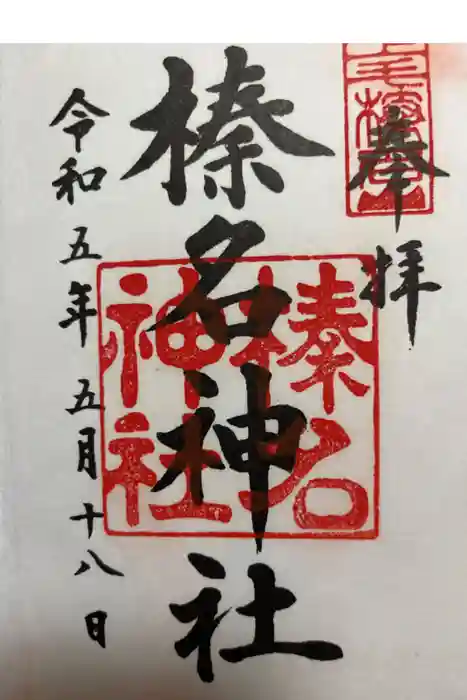 奉拝
榛名神社
令和五年五月十八日
榛名
神社